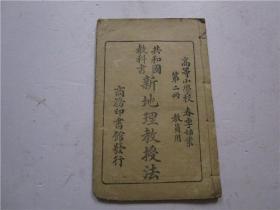 高等小學校 春季始業
第二冊 教員用
共和國
教科書
新地理教授法
商務印書館發行